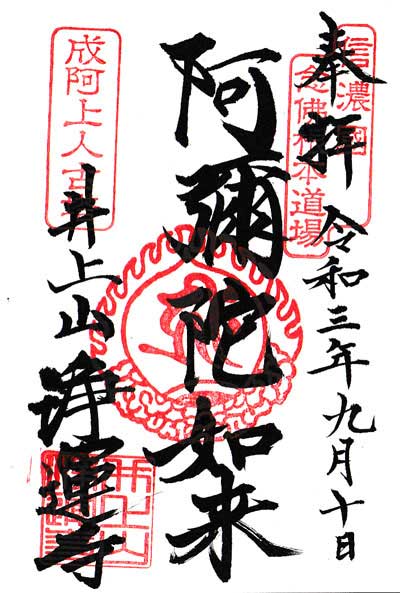 奉拝 令和三年九月十日
信濃國
念佛根本道場
阿彌陀如来
成阿上人古
井上山 浄運寺
井上山